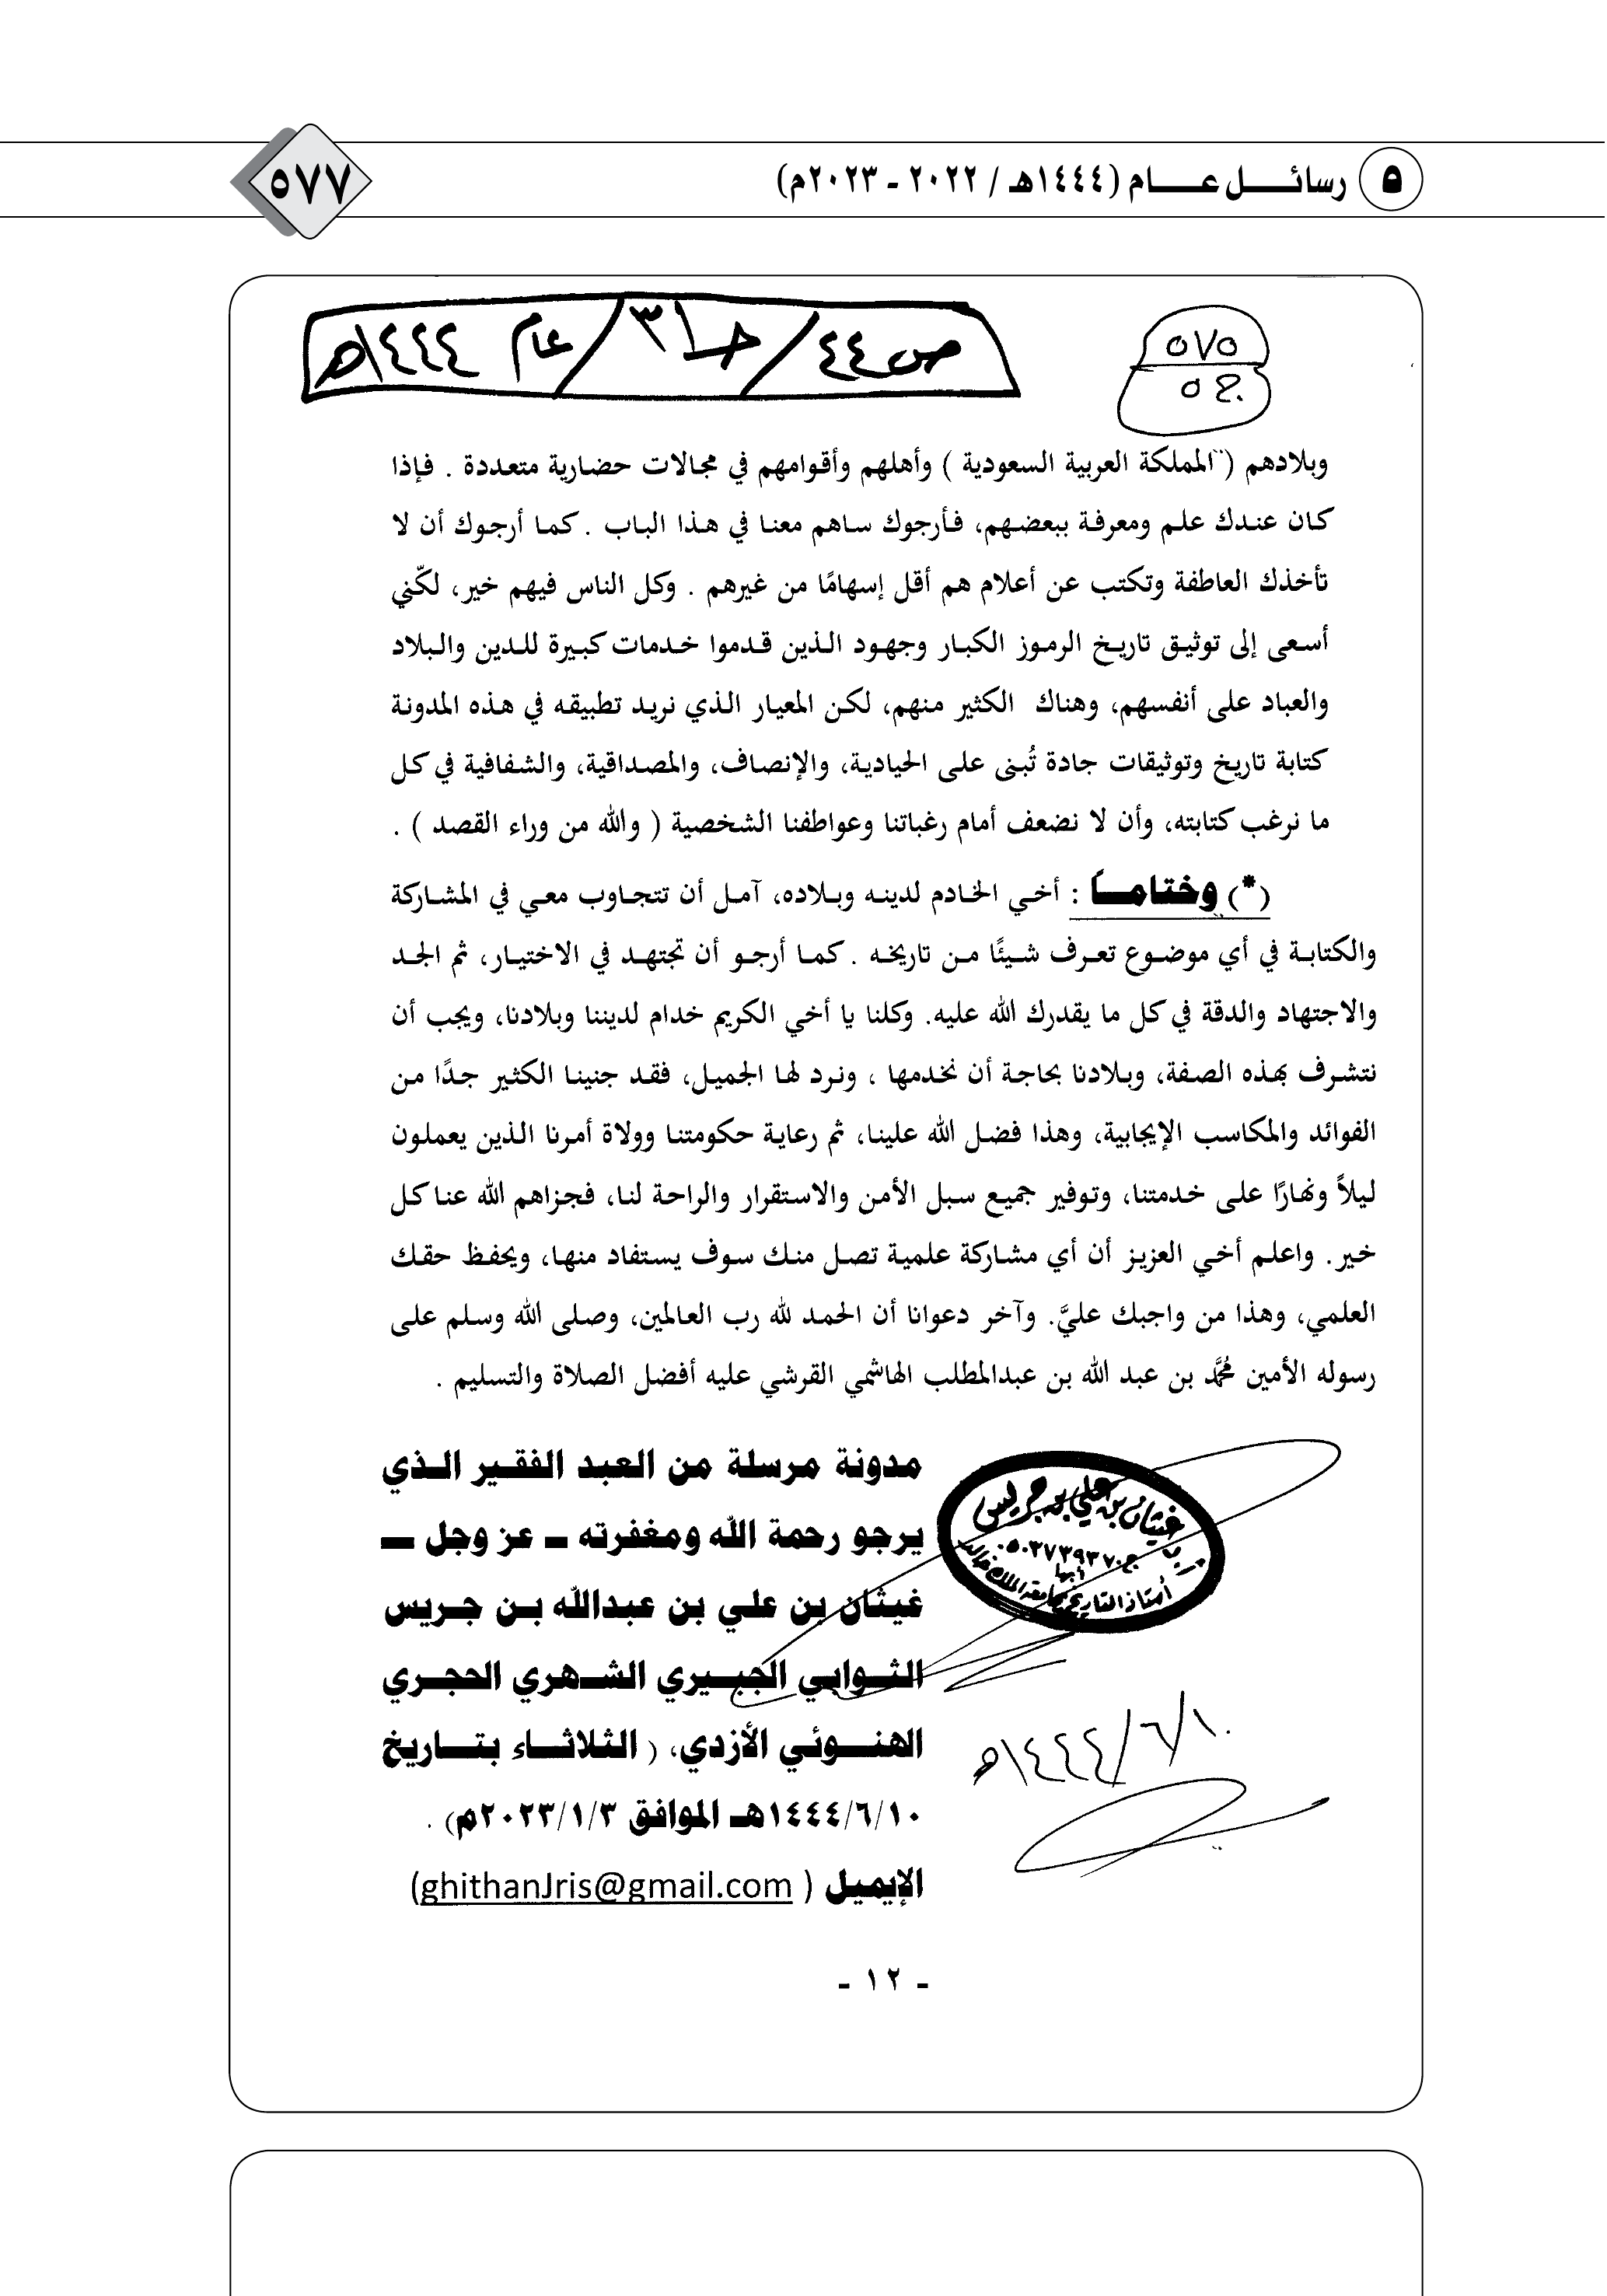 ٥ رسائـــل عـــام (١٤٤٤هـ / ٢٠٢٢ - ٢٠٢٣م)
٥٧٧
ص ٤٤ / حـ ٣١ / عام ١٤٤٤هـ
٥٧٥
ج ٥
وبلادهم ( المملكة العربية السعودية ) وأهلهم وأقوامهم في مجالات حضارية متعددة . فإذا
كان عندك علم ومعرفة ببعضهم، فأرجوك ساهم معنا في هذا الباب . كما أرجوك أن لا
تأخذك العاطفة وتكتب عن أعلام هم أقل إسهامًا من غيرهم . وكل الناس فيهم خير، لكنّي
أسعى إلى توثيق تاريخ الرموز الكبار وجهود الذين قدموا خدمات كبيرة للدين والبلاد
والعباد على أنفسهم، وهناك الكثير منهم، لكن المعيار الذي نريد تطبيقه في هذه المدونة
كتابة تاريخ وتوثيقات جادة تُبنى على الحيادية، والإنصاف، والمصداقية، والشفافية في كل
ما نرغب كتابته، وأن لا نضعف أمام رغباتنا وعواطفنا الشخصية ( والله من وراء القصد ) .
(*) وختامـــاً : أخي الخادم لدينه وبلاده، آمل أن تتجاوب معي في المشاركة
والكتابة في أي موضوع تعرف شيئًا من تاريخه . كما أرجو أن تجتهد في الاختيار، ثم الجد
والاجتهاد والدقة في كل ما يقدرك الله عليه. وكلنا يا أخي الكريم خدام لديننا وبلادنا، ويجب أن
نتشرف بهذه الصفة، وبلادنا بحاجة أن نخدمها ، ونرد لها الجميل، فقد جنينا الكثير جدًا من
الفوائد والمكاسب الإيجابية، وهذا فضل الله علينا، ثم رعاية حكومتنا وولاة أمرنا الذين يعملون
ليلاً ونهارًا على خدمتنا، وتوفير جميع سبل الأمن والاستقرار والراحة لنا، فجزاهم الله عنا كل
خير. واعلم أخي العزيز أن أي مشاركة علمية تصل منك سوف يستفاد منها، ويحفظ حقك
العلمي، وهذا من واجبك عليَّ. وآخر دعوانا أن الحمد لله رب العالمين، وصلى الله وسلم على
رسوله الأمين محمَّد بن عبد الله بن عبدالمطلب الهاشمي القرشي عليه أفضل الصلاة والتسليم .
مدونة مرسلة من العبد الفقير الذي
يرجو رحمة الله ومغفرته – عز وجل –
غيثان بن علي بن عبدالله بن جريس
الثوابي الجبيري الشهري الحجري
الهنوئي الأزدي، ( الثلاثاء بتاريخ
١٤٤٤/٦/١٠هـ الموافق ٢٠٢٣/١/٣م) .
الإيميل ( ghithanJris@gmail.com)
غيثان بن علي بن جريس
ج ٠٥٠٣٧٣٩٣٧٠
أبها
أستاذ التاريخ بجامعة الملك خالد
١٤٤٤/٦/١٠هـ
- ١٢ -